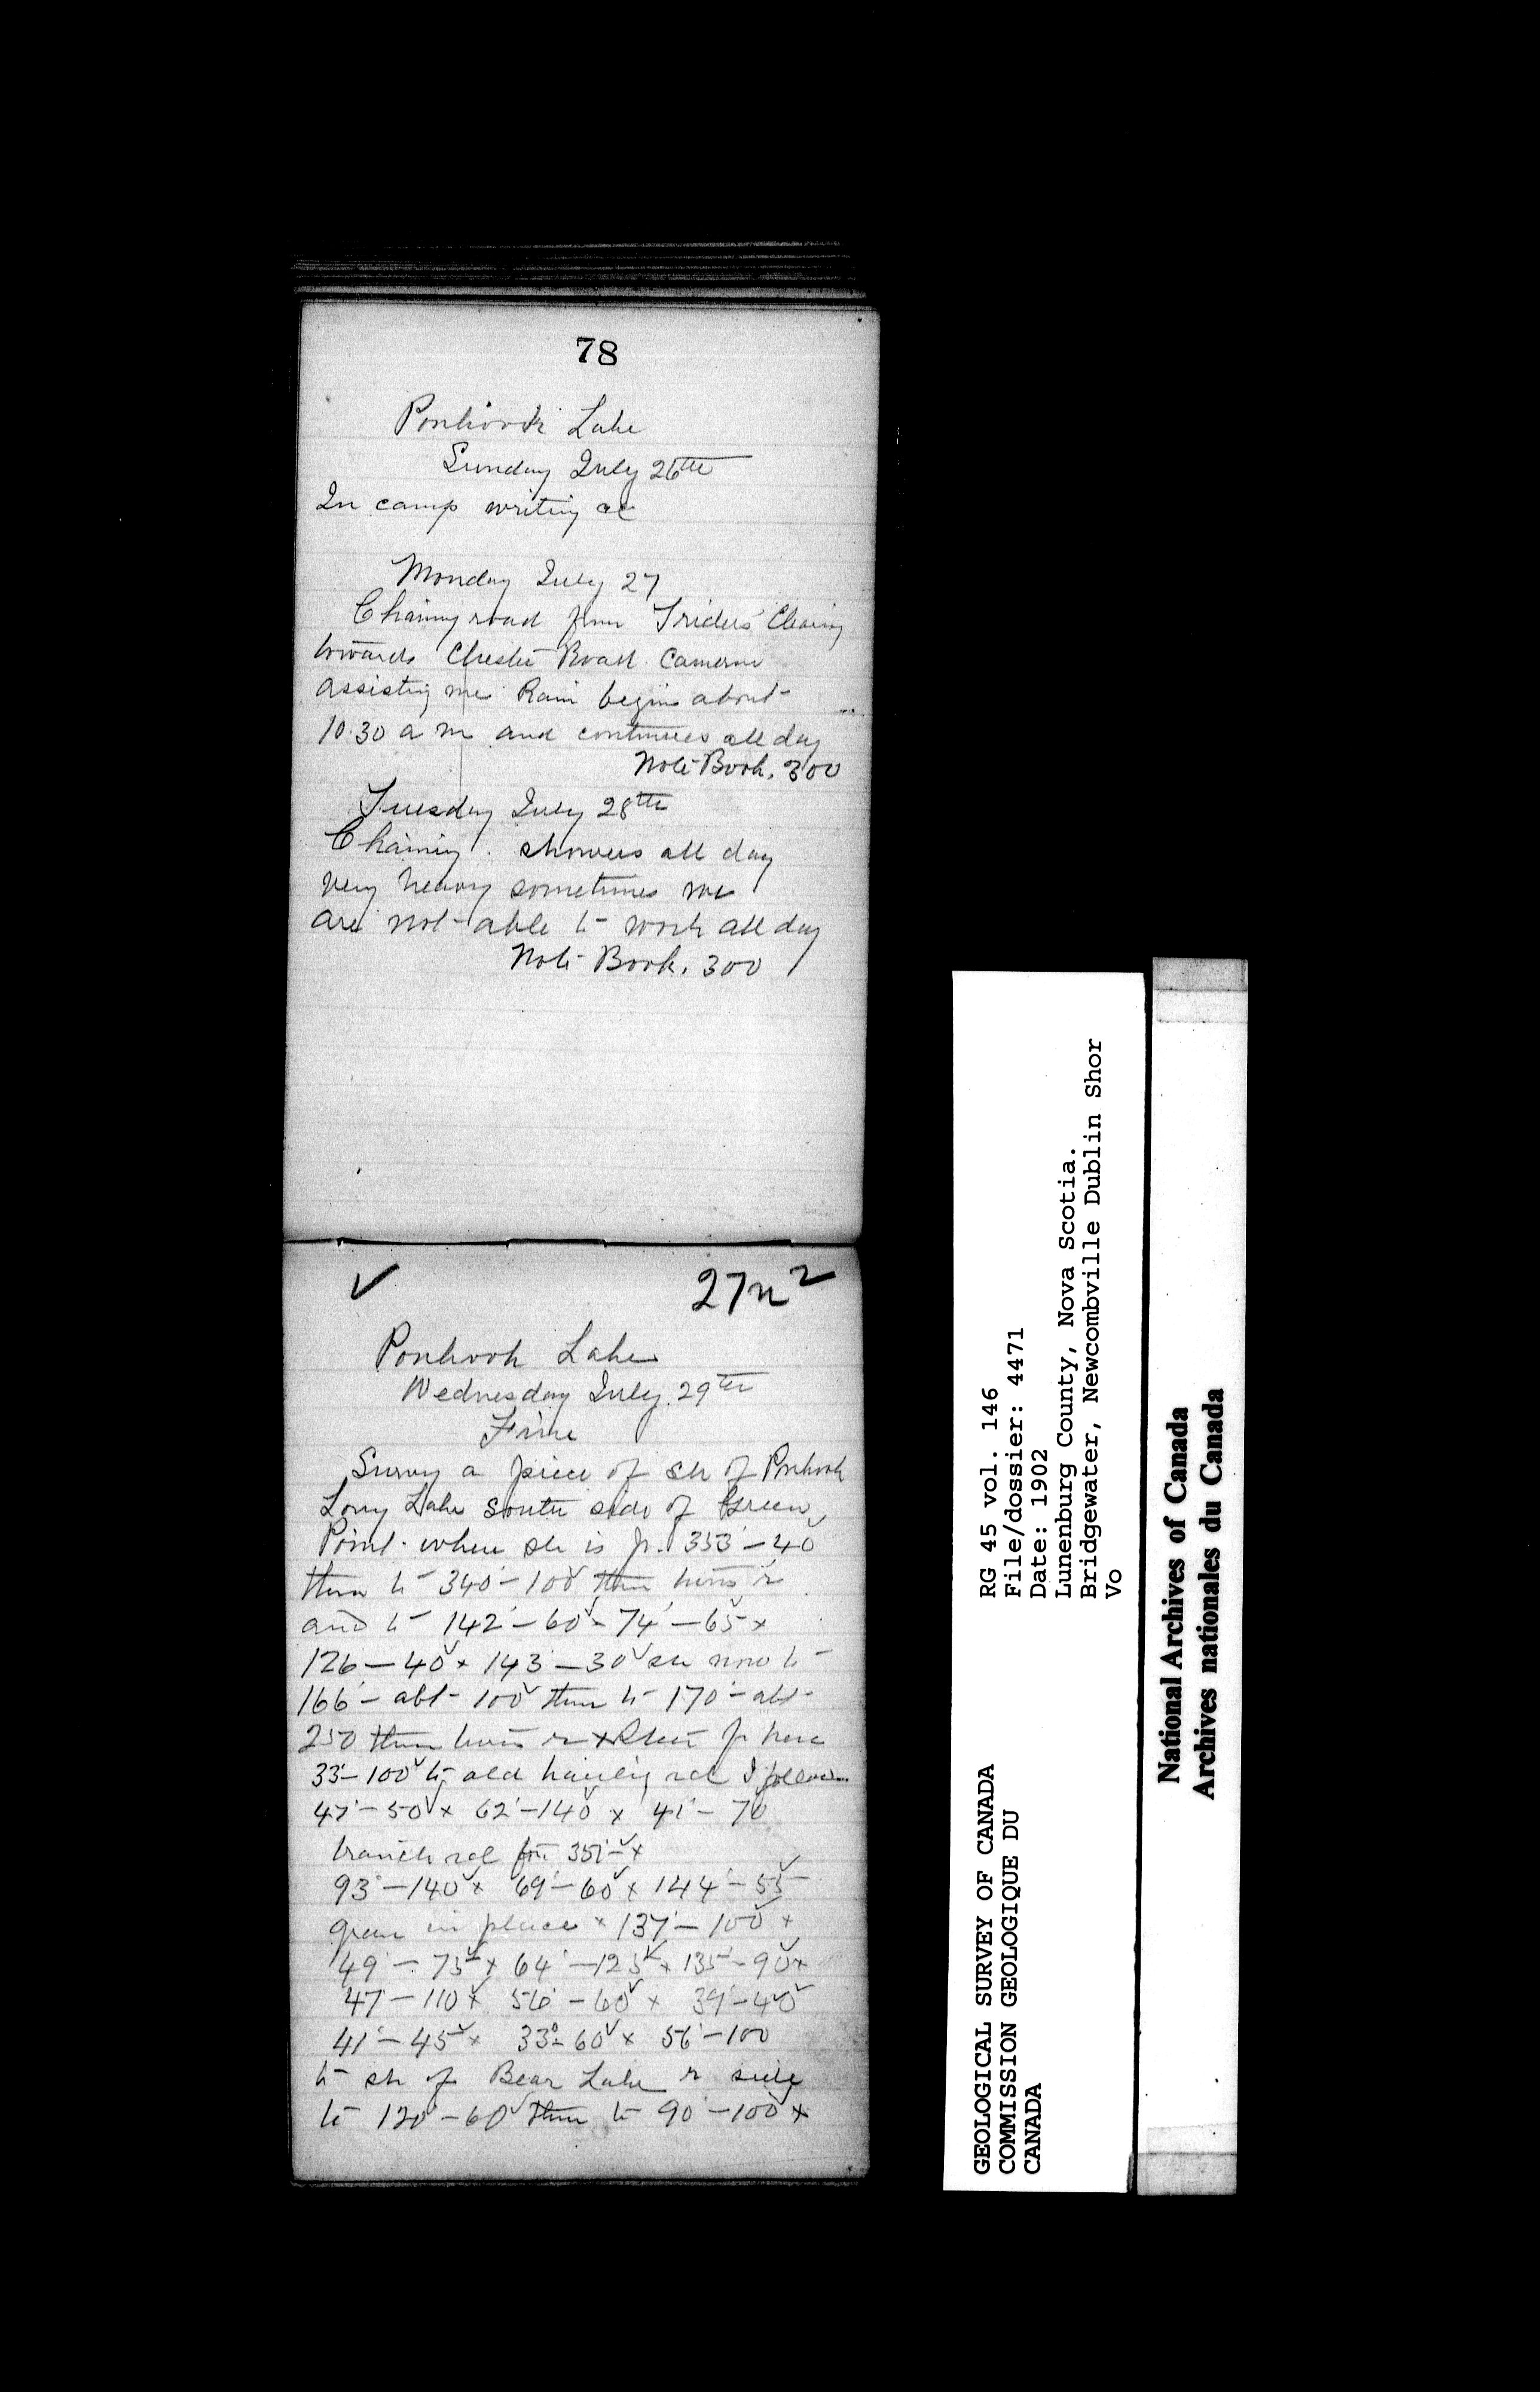 78
Ponhook Lake
Sunday July 26th
In camp writing &c
Monday July 27
Chaining road from Triders Clearing
towards Chester Road Cameron
assisting me Rain begins about
10.30 a m and continues all day
Note Book. 300
Tuesday July 28th
Chaining. showers all day
very heavy sometimes we
are not able to work all day
Note Book. 300
✓ 27n2
Ponhook Lake
Wednesday July 29th
Fine
Survey a piece of sh of Ponhook
Long Lake south side of Green
Point where sh is fr. 353° – 40
then to 340° – 100 then turns r
and to 142° – 60 x 74° – 65 x
126 – 40 x 143° – 30 sh now to
166° – abt 100 then to 170° – abt
250 then turns r x fr here
33° – 100 to old hauling rd I follow
47° – 50 x 62° – 140 x 41° – 70
branch rd fm 351° – x
93° – 140 x 69° – 60 x 144° – 55
gran in place x 137° – 100 x
49° – 75 x 64° – 125 x 135° – 90 x
47° – 110 x 56° – 60 x 39° – 40
41° – 45 x 33° – 60 x 56° – 100
to sh of Bear Lake r side
to 120° – 60 then to 90° – 100 x
GEOLOGICAL SURVEY OF CANADA
COMMISSION GEOLOGIQUE DU
CANADA
RG 45 vol. 146
File/dossier: 4471
Date: 1902
Lunenburg County, Nova Scotia.
Bridgewater, Newcombville Dublin Shor
Vo
National Archives of Canada
Archives nationales du Canada